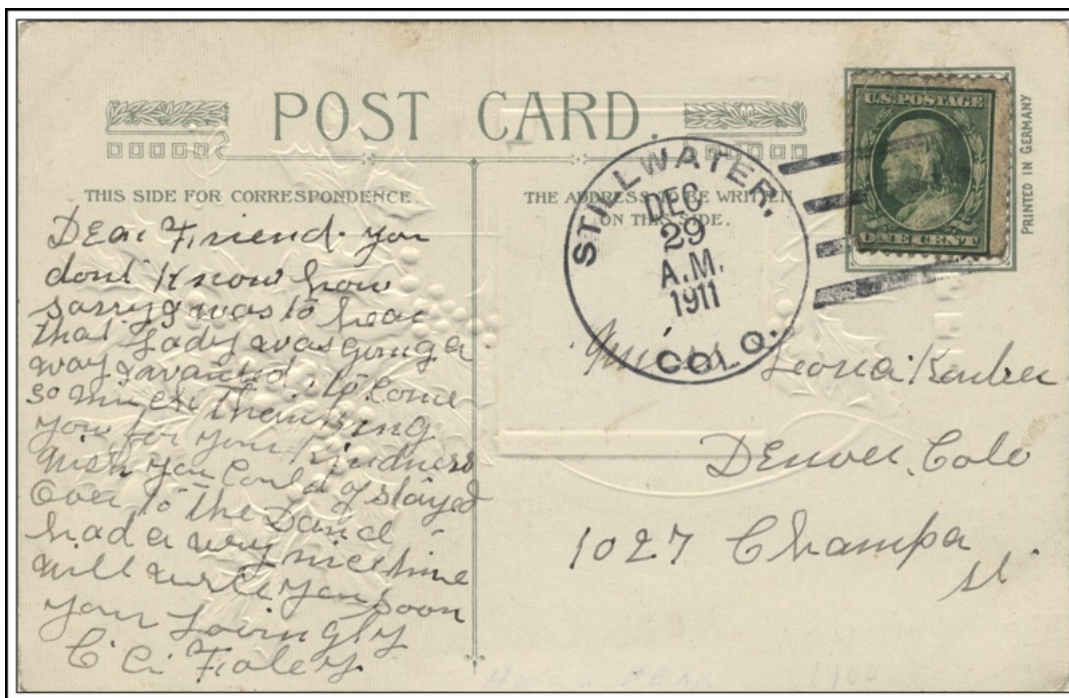 POST CARD.
THIS SIDE FOR CORRESPONDENCE.
THE ADDRESS TO BE WRITTEN
ON THIS SIDE.
STILLWATER,
DEC
29
A.M.
1911
COLO.
U.S. POSTAGE
ONE CENT
PRINTED IN GERMANY
Dear Friend. you
dont Know how
sorry I was to hear
that Lady was going a
way I wanted to come
so much thanking
you for your Kindness
wish you could of stayed
over to the Dance
had a very nice time
will write you soon
your Lovingly
Leona
Denver, Colo
1027 Champa
st.